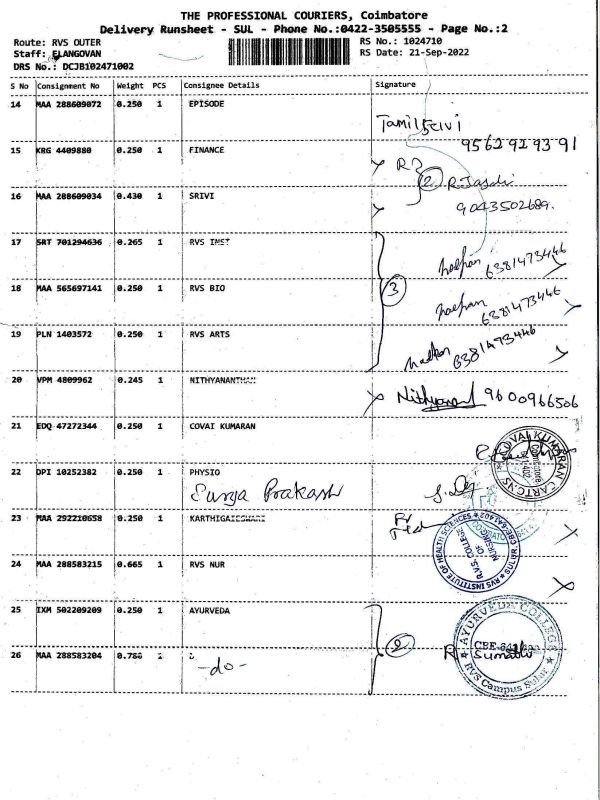 THE PROFESSIONAL COURIERS, Coimbatore
Delivery Runsheet - SUL - Phone No.:0422-3505555 - Page No.:2
Route: RVS OUTER RS No.: 1024710
Staff: ELANGOVAN RS Date: 21-Sep-2022
DRS No.: DCJB102471002
S No Consignment No Weight PCS Consignee Details Signature
14 MAA 288609072 0.250 1 EPISODE
Tamilselvi
9562929391
15 KRG 4409880 0.250 1 FINANCE
R
2 R.Jasdi
16 MAA 288609034 0.430 1 SRIVI
9043502689.
17 SRT 701294636 0.265 1 RVS INST
6381473446
18 MAA 565697141 0.250 1 RVS BIO
3
6381473446
19 PLN 1403572 0.250 1 RVS ARTS
6381473446
20 VPM 4809962 0.245 1 NITHYANANTHAN
Nithyanand 9600966506
21 EDQ 47272344 0.250 1 COVAI KUMARAN
COVAI KUMARAN CARTONS
Coimbatore
22 DPI 10252382 0.250 1 PHYSIO
Surya Prakash
23 MAA 292210658 0.250 1 KARTHIGAIESWARI
R.V.S. COLLEGE OF NURSING
RVS INSTITUTE OF HEALTH SCIENCES
SULUR, CBE-641402
24 MAA 288583215 0.665 1 RVS NUR
25 IXM 502209209 0.250 1 AYURVEDA
2
AYURVEDA COLLEGE
RVS Campus Sulur
R Sumathi
26 MAA 288583204 0.780 1
-do-